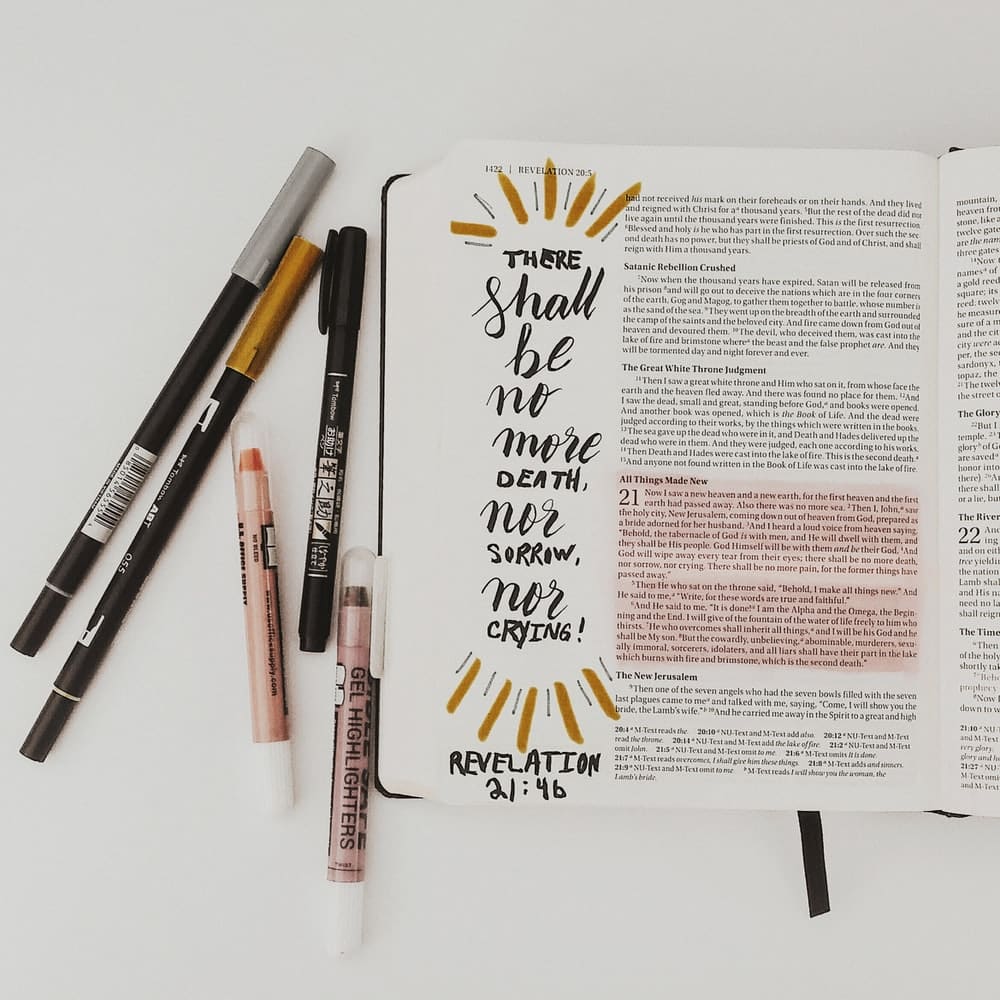 1422 | REVELATION 20:5
THERE
shall
be
no
more
DEATH,
nor
SORROW,
nor
CRYING!
REVELATION
21:4b
had not received his mark on their foreheads or on their hands. And they lived
and reigned with Christ for a thousand years. 5But the rest of the dead did not
live again until the thousand years were finished. This is the first resurrection.
6Blessed and holy is he who has part in the first resurrection. Over such the sec-
ond death has no power, but they shall be priests of God and of Christ, and shall
reign with Him a thousand years.
Satanic Rebellion Crushed
7Now when the thousand years have expired, Satan will be released from
his prison 8and will go out to deceive the nations which are in the four corners
of the earth, Gog and Magog, to gather them together to battle, whose number is
as the sand of the sea. 9They went up on the breadth of the earth and surrounded
the camp of the saints and the beloved city. And fire came down from God out of
heaven and devoured them. 10The devil, who deceived them, was cast into the
lake of fire and brimstone where the beast and the false prophet are. And they
will be tormented day and night forever and ever.
The Great White Throne Judgment
11Then I saw a great white throne and Him who sat on it, from whose face the
earth and the heaven fled away. And there was found no place for them. 12And
I saw the dead, small and great, standing before God, and books were opened.
And another book was opened, which is the Book of Life. And the dead were
judged according to their works, by the things which were written in the books.
13The sea gave up the dead who were in it, and Death and Hades delivered up the
dead who were in them. And they were judged, each one according to his works.
14Then Death and Hades were cast into the lake of fire. This is the second death.
15And anyone not found written in the Book of Life was cast into the lake of fire.
All Things Made New
21 Now I saw a new heaven and a new earth, for the first heaven and the first
earth had passed away. Also there was no more sea. 2Then I, John, saw
the holy city, New Jerusalem, coming down out of heaven from God, prepared as
a bride adorned for her husband. 3And I heard a loud voice from heaven saying,
"Behold, the tabernacle of God is with men, and He will dwell with them, and
they shall be His people. God Himself will be with them and be their God. 4And
God will wipe away every tear from their eyes; there shall be no more death,
nor sorrow, nor crying. There shall be no more pain, for the former things have
passed away."
5Then He who sat on the throne said, "Behold, I make all things new." And
He said to me, "Write, for these words are true and faithful."
6And He said to me, "It is done! I am the Alpha and the Omega, the Begin-
ning and the End. I will give of the fountain of the water of life freely to him who
thirsts. 7He who overcomes shall inherit all things, and I will be his God and he
shall be My son. 8But the cowardly, unbelieving, abominable, murderers, sexu-
ally immoral, sorcerers, idolaters, and all liars shall have their part in the lake
which burns with fire and brimstone, which is the second death."
The New Jerusalem
9Then one of the seven angels who had the seven bowls filled with the seven
last plagues came to me and talked with me, saying, "Come, I will show you the
bride, the Lamb's wife." 10And he carried me away in the Spirit to a great and high
20:4 M-Text reads the. 20:10 NU-Text and M-Text add also. 20:12 NU-Text and M-Text
read the throne. 20:14 NU-Text and M-Text add the lake of fire. 21:2 NU-Text and M-Text
omit John. 21:5 NU-Text and M-Text omit to me. 21:6 M-Text omits It is done.
21:7 M-Text reads overcomes, I shall give him these things. 21:8 M-Text adds and sinners.
21:9 NU-Text and M-Text omit to me. M-Text reads I will show you the woman, the
Lamb's bride.
Tombow ART 055
Tombow
www.usofficesupply.com
GEL HIGHLIGHTERS
TWIST
mountain,
heaven from
The Glory
The River
22
The Time